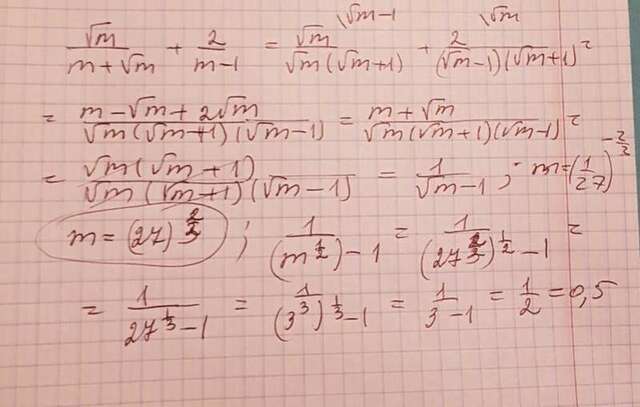 \√m-1 \√m
√m/(m+√m) + 2/(m-1) = √m/(√m(√m+1)) + 2/((√m-1)(√m+1)) =
= (m-√m+2√m)/(√m(√m+1)(√m-1)) = (m+√m)/(√m(√m+1)(√m-1)) =
= √m(√m+1)/(√m(√m+1)(√m-1)) = 1/(√m-1); m=(1/27)^(-2/3)
m=(27)^(2/3); 1/((m^(1/2))-1) = 1/((27^(2/3))^(1/2)-1) =
= 1/(27^(1/3)-1) = 1/((3^3)^(1/3)-1) = 1/(3-1) = 1/2 = 0,5